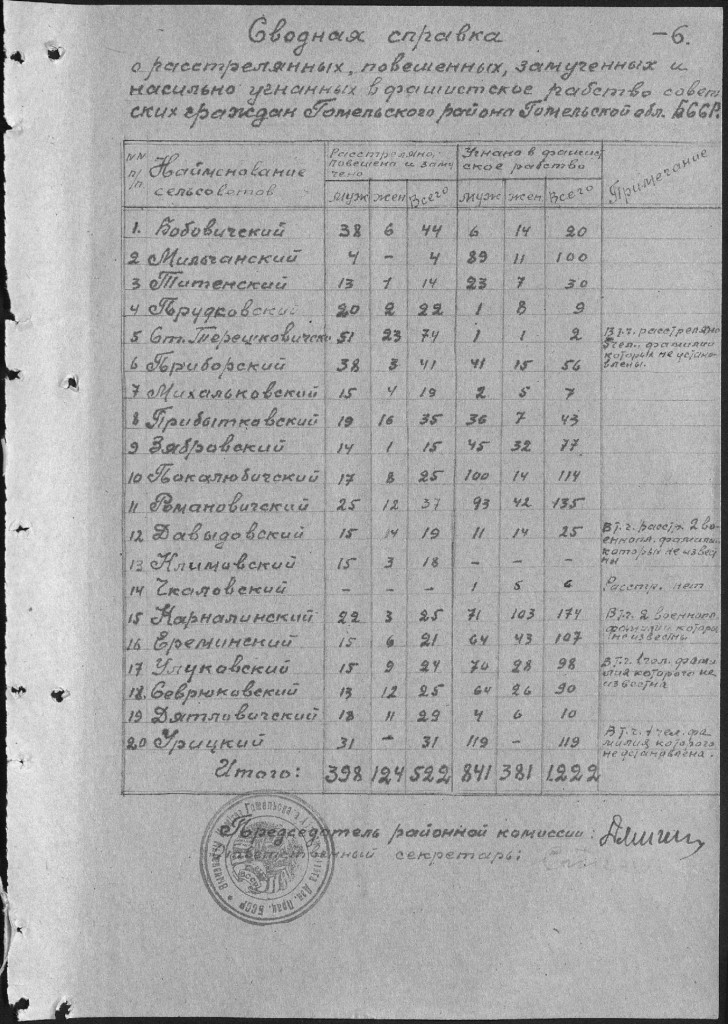 Сводная справка
-6.
о расстрелянных, повешенных, замученных и
насильно угнанных в фашистское рабство совет
ских граждан Гомельского района Гомельской обл. БССР.
NN п/п Наймснование сельсоветов Расстреляно, повешена и заму чено Угнано в фашис ское рабство Примечание
муж жен Всего муж жен Всего
1. Бобовичский 38 6 44 6 14 20
2 Мильчанский 4 - 4 89 11 100
3 Титенский 13 1 14 23 7 30
4 Прудковский 20 2 22 1 8 9
5 Ст. Терешковичски 51 23 74 1 1 2 В т.ч. расстреляно 5 чел. фамилии которых не установлены.
6 Приборский 38 3 41 41 15 56
7 Михальковский 15 4 19 2 5 7
8 Прибытковский 19 16 35 36 7 43
9 Зябровский 14 1 15 45 32 77
10 Покалюбичский 17 8 25 100 14 114
11 Романовичский 25 12 37 93 42 135
12 Давыдовский 15 14 19 11 14 25 В т.ч. расстр. 2 военнопл. фамилии которых не известны
13 Климовский 15 3 18 - - -
14 Чкаловский - - - 1 5 6 Расстр. нет
15 Карналинский 22 3 25 71 103 174 В т.ч. 2 военного фамилии которы неизвестны
16 Ереминский 15 6 21 64 43 107
17 Улуковский 15 9 24 70 28 98 В т.ч. 1 чел. фамилия которого не известна
18. Севрюковский 13 12 25 64 26 90
19 Дятловичский 18 11 29 4 6 10
20 Урицкий 31 - 31 119 - 119 В т.ч. 1 чел. фамилия которого не установлена.
Итого: 398 124 522 841 381 1.222
Председатель районной комиссии:
Ответственный секретарь: